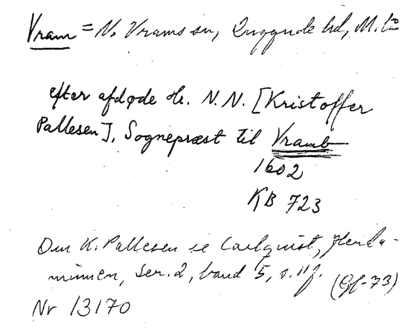 Vram = N. Vrams sn, Luggude hd, M. län
efter afdøde Hr. N.N. [Kristoffer
Pallesen], Sognepræst til Vramb
1602
KB 723
Om K. Pallesen se Carlquist, Herda-
minnen, ser. 2, band 5, s. 11f. (Gf-73)
Nr 13170